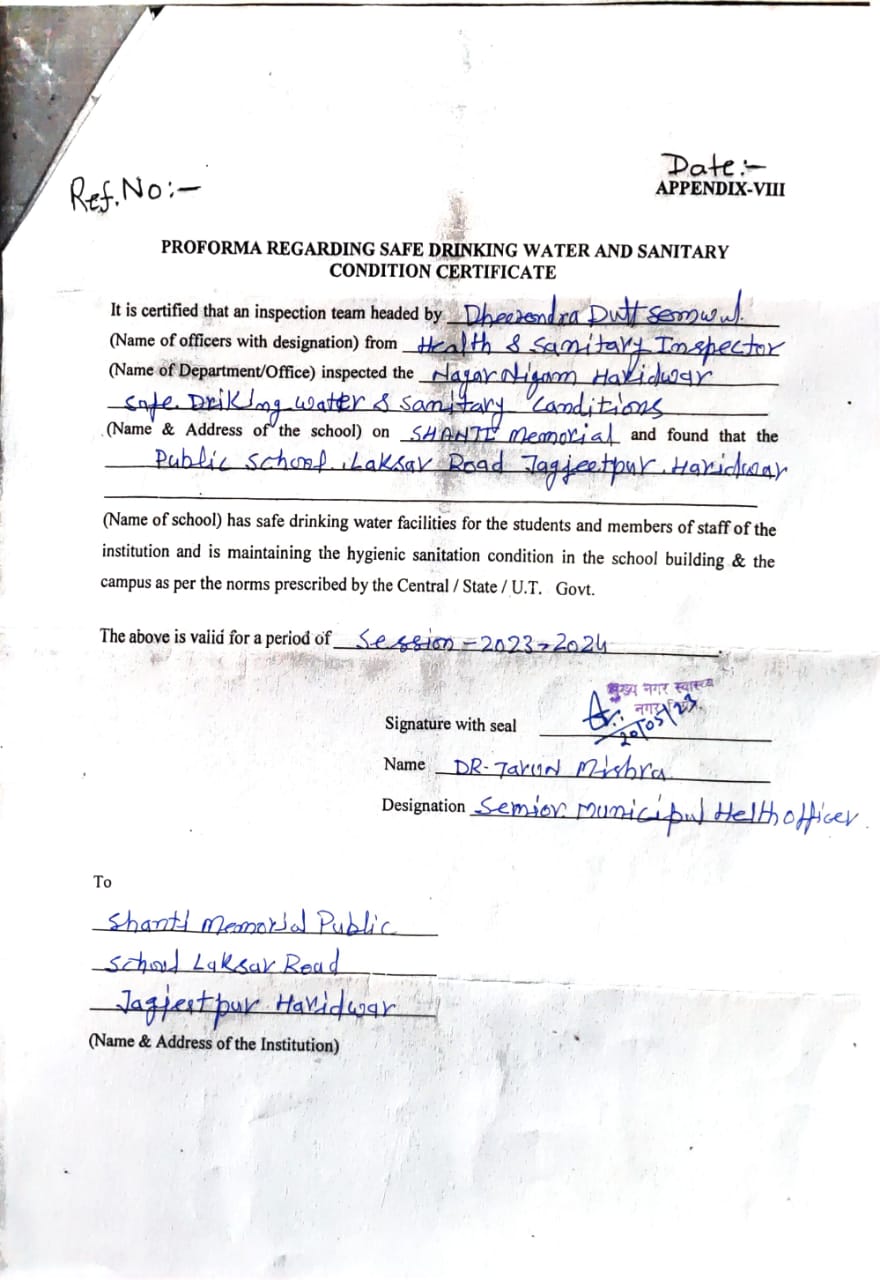 Ref.No:-
Date:-
APPENDIX-VIII
PROFORMA REGARDING SAFE DRINKING WATER AND SANITARY
CONDITION CERTIFICATE
It is certified that an inspection team headed by Dheerendra Dutt Semwul.
(Name of officers with designation) from Health & Sanitary Inspector
(Name of Department/Office) inspected the Nagar Nigam Haridwar
Safe Driking water & Sanitary Conditions
(Name & Address of the school) on SHANTI Memorial and found that the
Public School, Laksar Road Jagjeetpur, Haridwar
(Name of school) has safe drinking water facilities for the students and members of staff of the
institution and is maintaining the hygienic sanitation condition in the school building & the
campus as per the norms prescribed by the Central / State / U.T. Govt.
The above is valid for a period of Session-2023-2024.
मुख्य नगर स्वास्थ्य
नगर
Signature with seal 20/05/23
Name DR-Tarun Mishra
Designation Semior Municipul Helth officer.
To
Shanti Memorial Public
School Laksar Road
Jagjeetpur Haridwar
(Name & Address of the Institution)